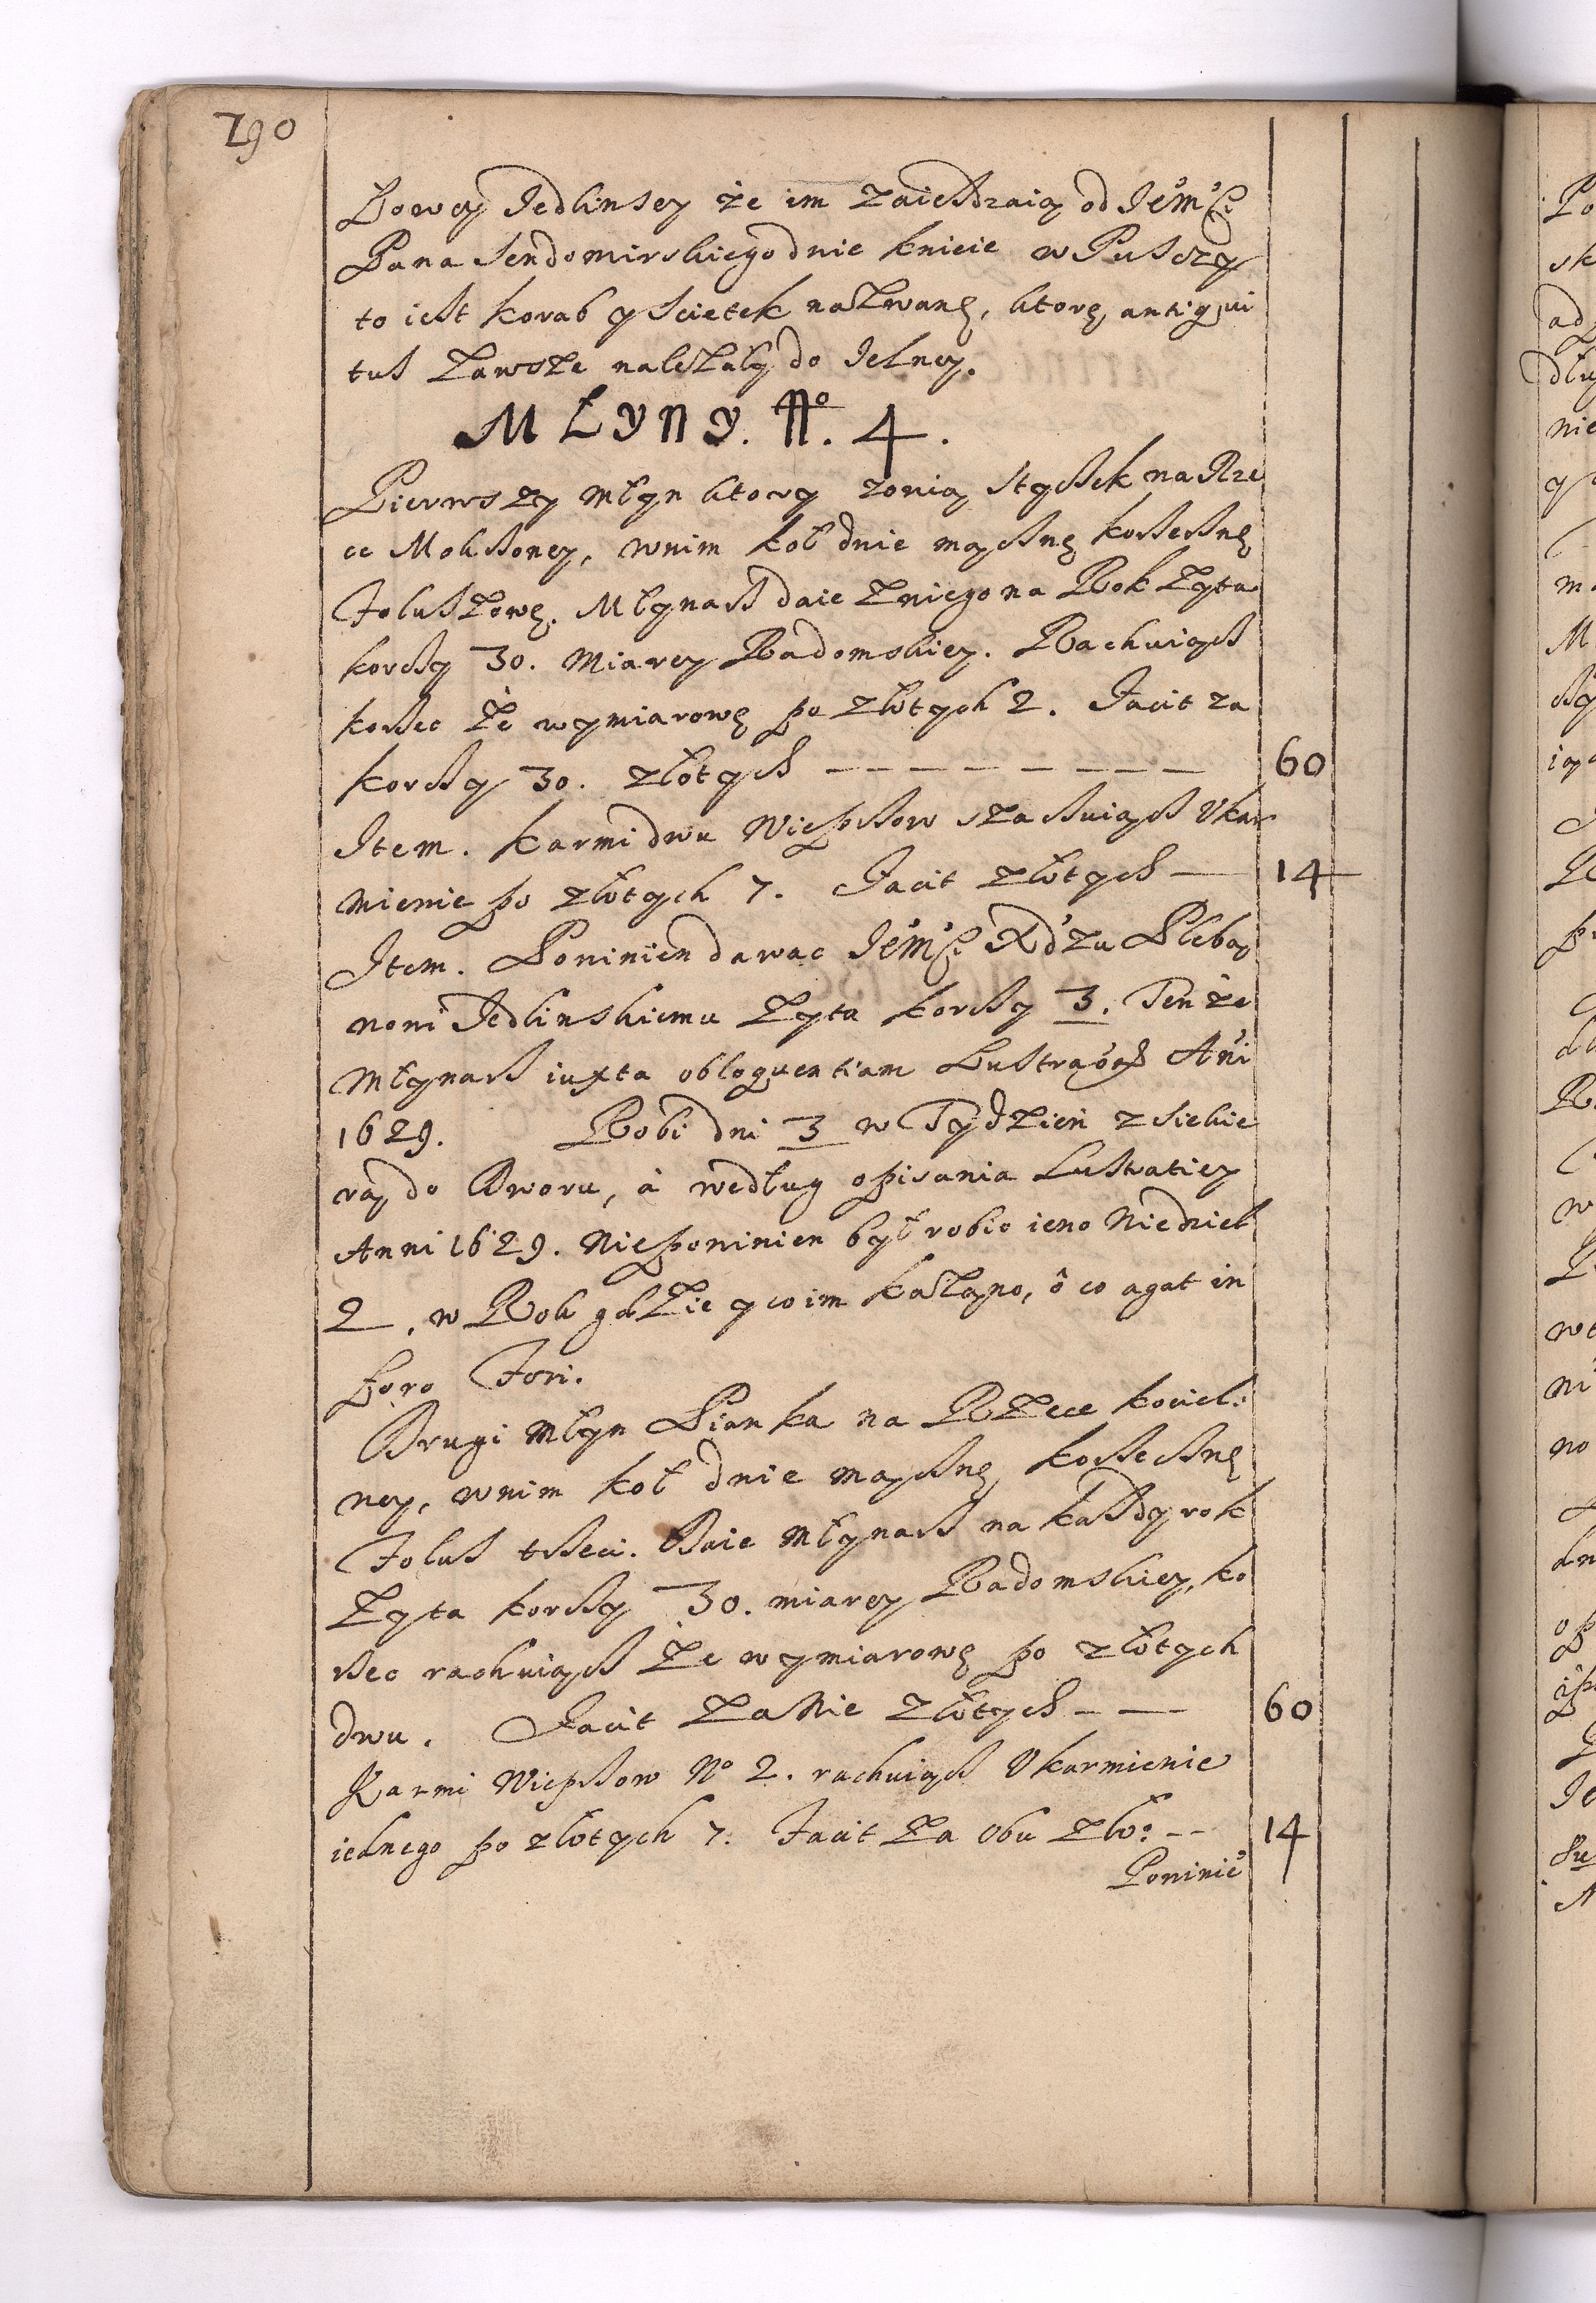 190
Łowcy Jedlinscy że im zaieżdzaią od Jeºmºści
Pana Sendomirskiego dwie kniecie w Pusczy
to iest Korab y Scietek nazwane, ktore antiqui
tus zawsze należały do Jelney.
MŁYNY. Nº. 4.
Pierwszy młyn ktory zowią Stysek na Rze
ce Mokssoney, w nim koł dwie mączne korzeczne
Folusżowe. Młynarz daie z niego na Rok żyta
korcy 30. Miarey Radomskiey. Rachuiąc
korzec że wymiarowy po złotych 2. Facit za
korcy 30. złotych — — — — — — — — 60
Item. Karmi dwu Wieprzow szacuiąc Ukar
mienie po złotych 7. Facit złotych — 14
Item. Powinien dawac Jeºmºści Xdzu Pleba
nowi Jedlinskiemu Zyta korcy 3. Tenże
Młynarz iuxta obloquentiam Lustraorũ Ani
1629. Robi dni 3 w Tydzień z siekie
rą do Dworu, à według opisania Lustratiey
Anni 1629. Niepowinien był robic ieno Niedziel
2, w Rok gdzie y co im każąno, ô co agat in
Foro Fori.
Drugi Młyn Pianka na Rzece Kociel:
ney, w nim koł dwie mączne korzeczne
Folus trzeci. Daie Młynarz na każdy rok
Zyta korcy 30. miarey Radomskiey, ko
rzec rachuiąc że wymiarowy po złotych
dwu. Facit zanie złotych — — 60
Karmi Wieprzow Nº 2. rachuiąc Ukarmienie
iednego po złotych 7. Facit za obu zło: — — 14
Powinie